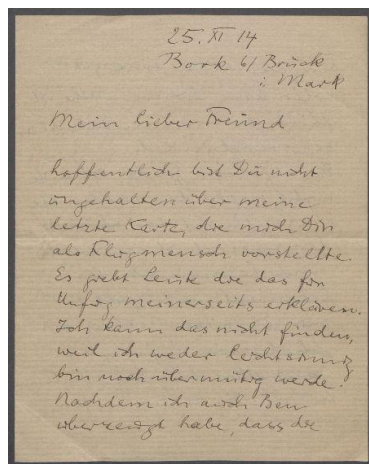 25. XI 14
Bork b/ Brück
i. Mark
Mein lieber Freund
hoffentlich bist Du nicht
ungehalten über meine
letzte Karte, die mich Dir
als Flugmensch vorstellte.
Es giebt Leute die das für
Unfug meinerseits erklären.
Ich kann das nicht finden,
weil ich weder leichtsinnig
bin noch übermütig werde.
Nachdem ich mich
überzeugt habe, dass die